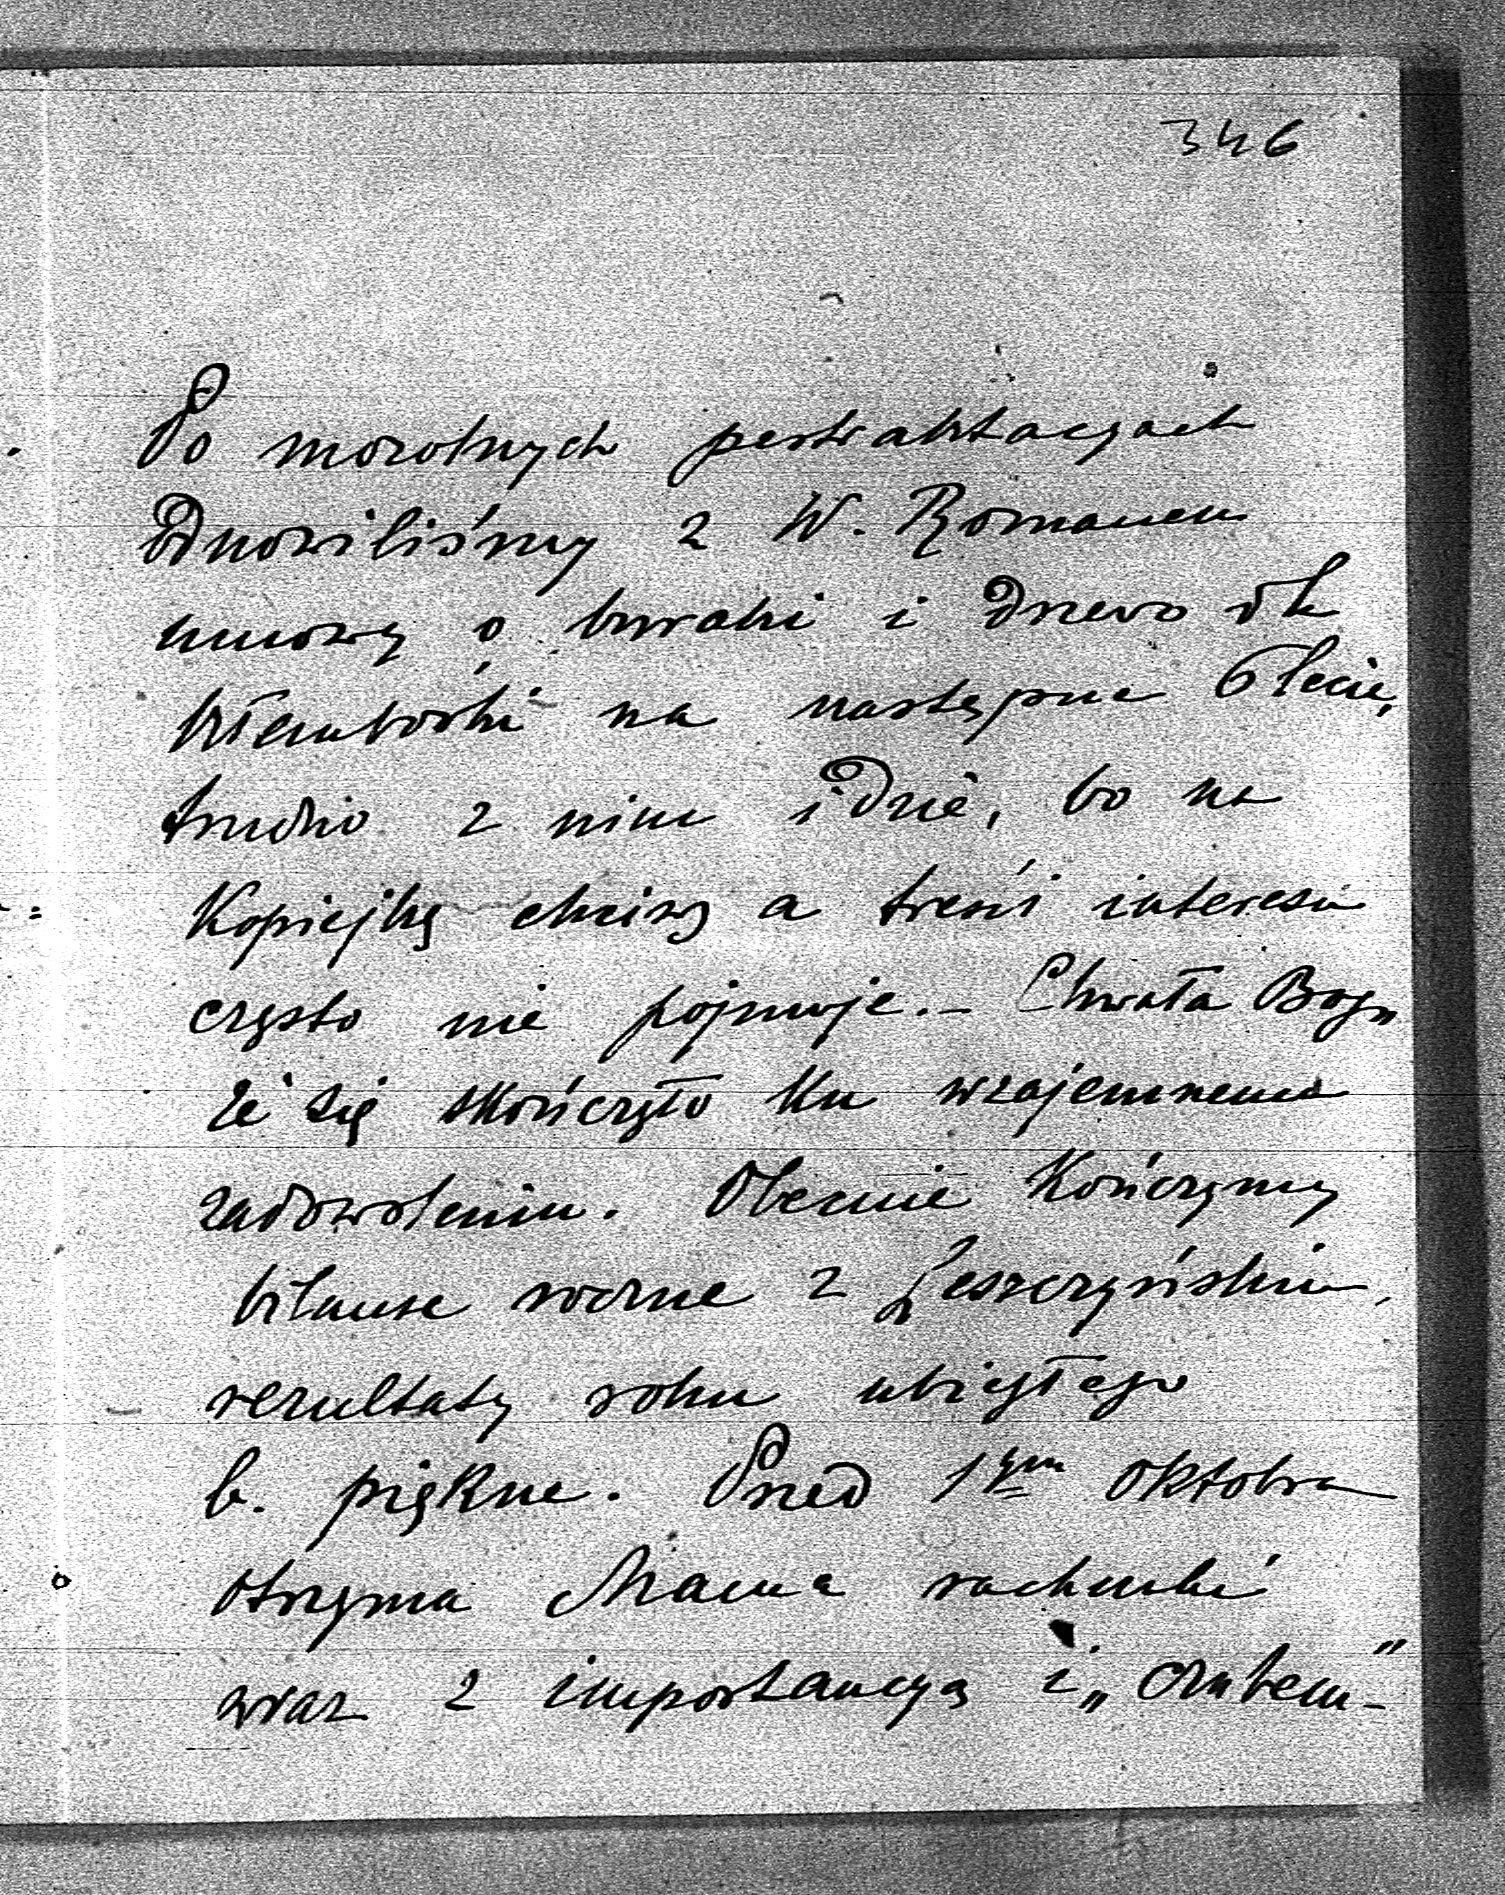 346
Po mozolnych pertraktacjach
odnowiliśmy z W. Romanem
umowę o buraki i drzewo dla
na następne 6lecie,
trudno z nim idzie, bo na
Kopiejkę chciwy a treści interesu
często nie pojmuje. – Chwała Bogu
że się skończyło ku wzajemnemu
zadowoleniu. Obecnie Kończymy
bilanse roczne z Leszczyńskim,
rezultaty roku ubiegłego
b. piękne. Przed 1ym Oktobra
otrzyma Mama rachunki
wraz z importancyą i „czubem”